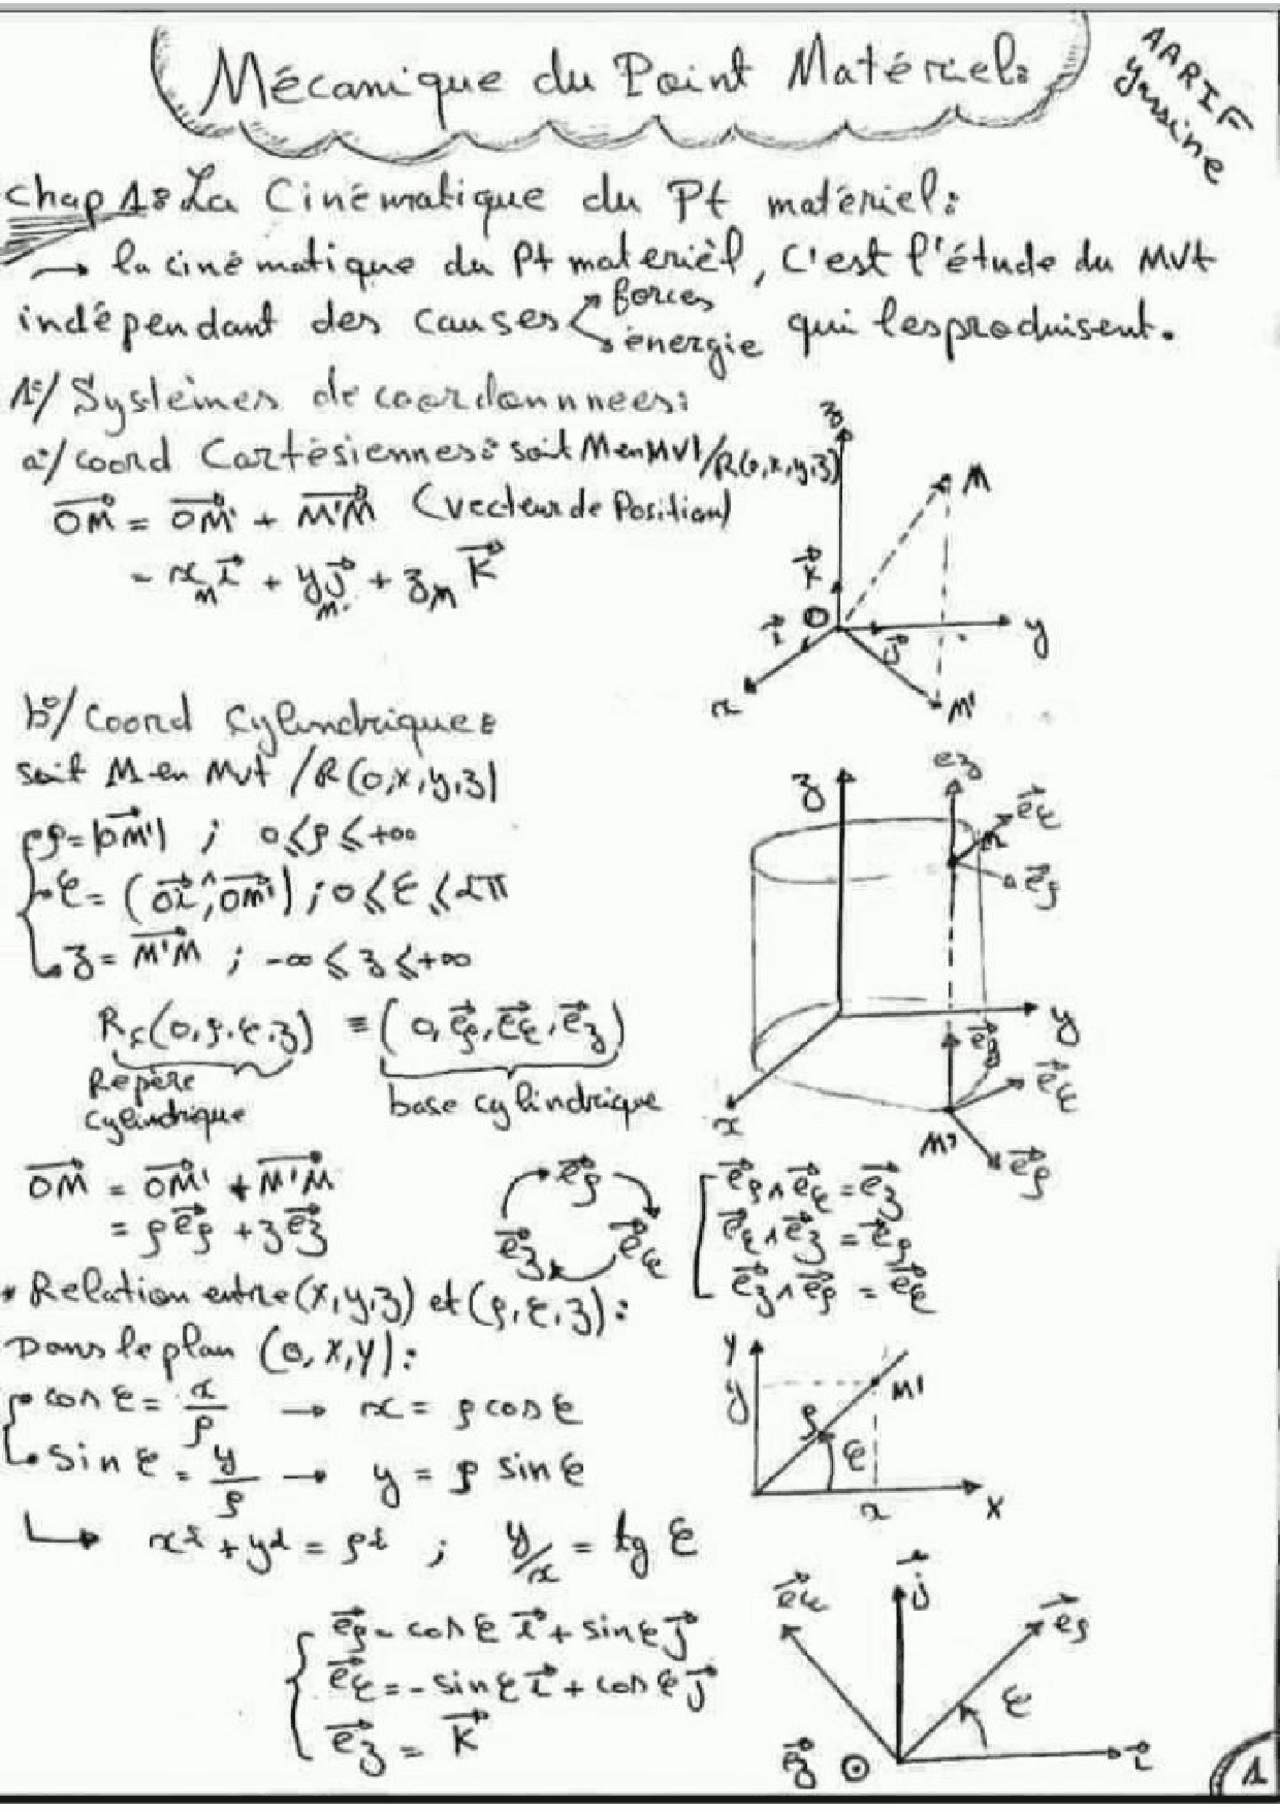 Mécanique du Point Matériel:
AARIF
Yassine
Chap 1: La Cinématique du Pt matériel:
→ la cinématique du Pt materièl, C'est l'étude du MVt
indépendant des causes forces
énergie qui lesproduisent.
1°/ Systèmes de coordonnnees:
a°/ coord Cartésiennes: soit M en MVt /R(o,x,y,z)
OM = OM' + M'M (vecteur de Position)
= x_M i + y_M j + z_M K
z
M
K
O
i
j
y
x
M'
b°/ Coord Cylindrique:
soit M en Mvt /R(o,x,y,z)
ρ = |OM'| ; 0 ≤ ρ ≤ +∞
φ = (Oi, OM') ; 0 ≤ φ ≤ 2π
z = M'M ; -∞ ≤ z ≤ +∞
z
ez
eφ
M
eρ
y
ez
eφ
x
M'
eρ
Rc(0,ρ,φ,z) ≡ (0, eρ, eφ, ez)
Repère
cylindrique
base cylindrique
OM = OM' + M'M
= ρeρ + zez
eρ
eφ
ez
eρ ∧ eφ = ez
eφ ∧ ez = eρ
ez ∧ eρ = eφ
* Relation entre (x,y,z) et (ρ,φ,z):
Dans le plan (o,x,y):
cos φ = x/ρ → x = ρ cos φ
sin φ = y/ρ → y = ρ sin φ
↳ x² + y² = ρ² ; y/x = tg φ
Y
y
M'
ρ
φ
x
X
eρ = cos φ i + sin φ j
eφ = - sin φ i + cos φ j
ez = K
eφ
j
eρ
φ
ez
i
1